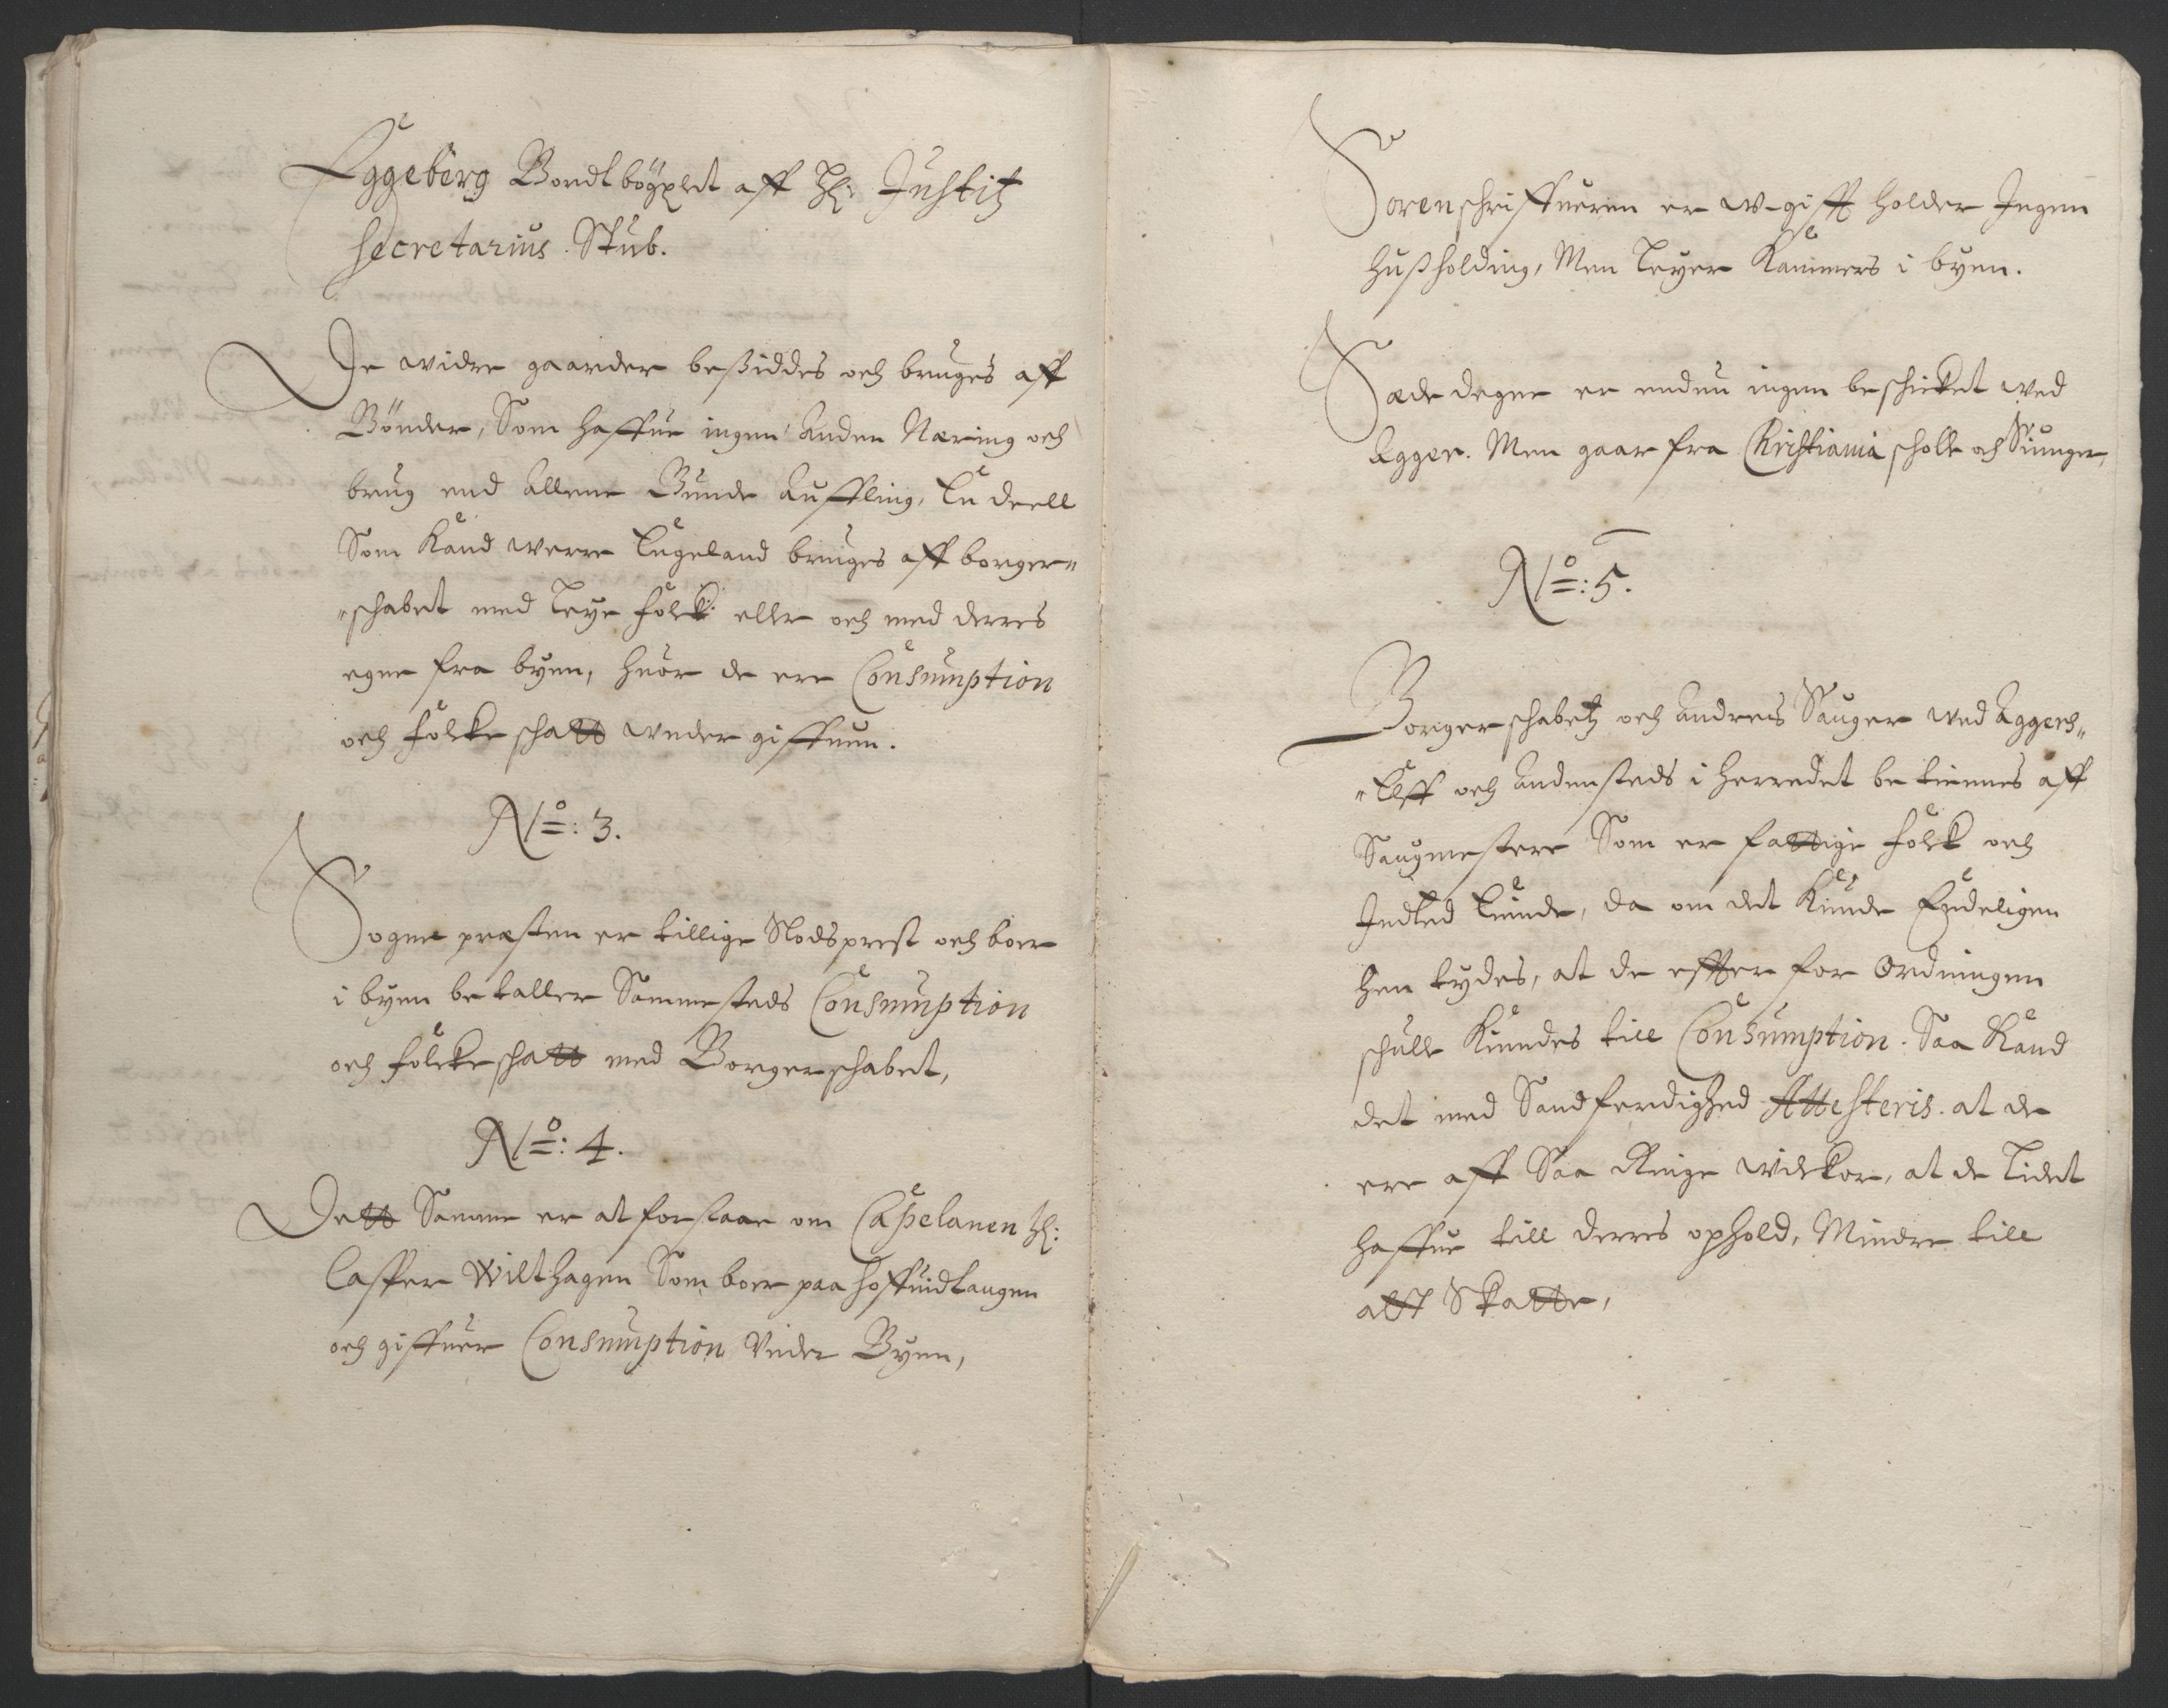 Eggeberg Bondt bögxlet aff Hr: Justitz
Secretarius Stub.
De widre gaarder beßiddes och bruges aff
Bönder, Som haffue ingen Anden Næring och
brug end Allene Bunde Auffling, En deell
Som Kand werre Engeland bruges aff borger"
"schabet med Leye folck eller och med derres
egne fra byen, huor de ere Consumption
och folcke schatt under giffuen.
No: 3.
Sogne præsten er tillige Slodsprest och boer
i byen betaller Sammesteds Consumption
och folcke schatt med Borgerschabet,
No: 4.
Dett Samme er at forstaae om Capelanen Hr:
Casper Wilthagen Som boer paa hoffuidtangen
och giffuer Consumption Under Byen,
Sorenschriffueren er w-gifft holder Ingen
hußholding, Men Leyer Kammers i byen.
Sæde degne er endnu ingen beschicket wed
Agger. Men gaar fra Christiania scholle och Siunger,
No: 5.
Borgerschabetz och Andres Sauger wed Aggers"
"Elff och Andensteds i herredet be tiennes aff
Saugmestere Som er fattige folck och
Indted Eiende, da om det Kunde Endeligen
hen tydes, at de effter for Ordningen
schulle Kiendes till Consumption. Saa Kand
det med Sandferdighed Attesteris. at de
ere aff Saa Ringe widkor, at de Lidet
haffue till derres ophold, Mindre till
att Skatte,